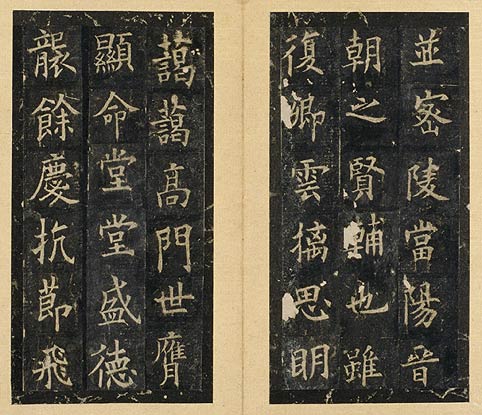 並密陵當陽晉
朝之賢輔也雖
復卿雲摛思眀
藹藹高門世膺
顯命堂堂盛德
襲餘慶抗節飛